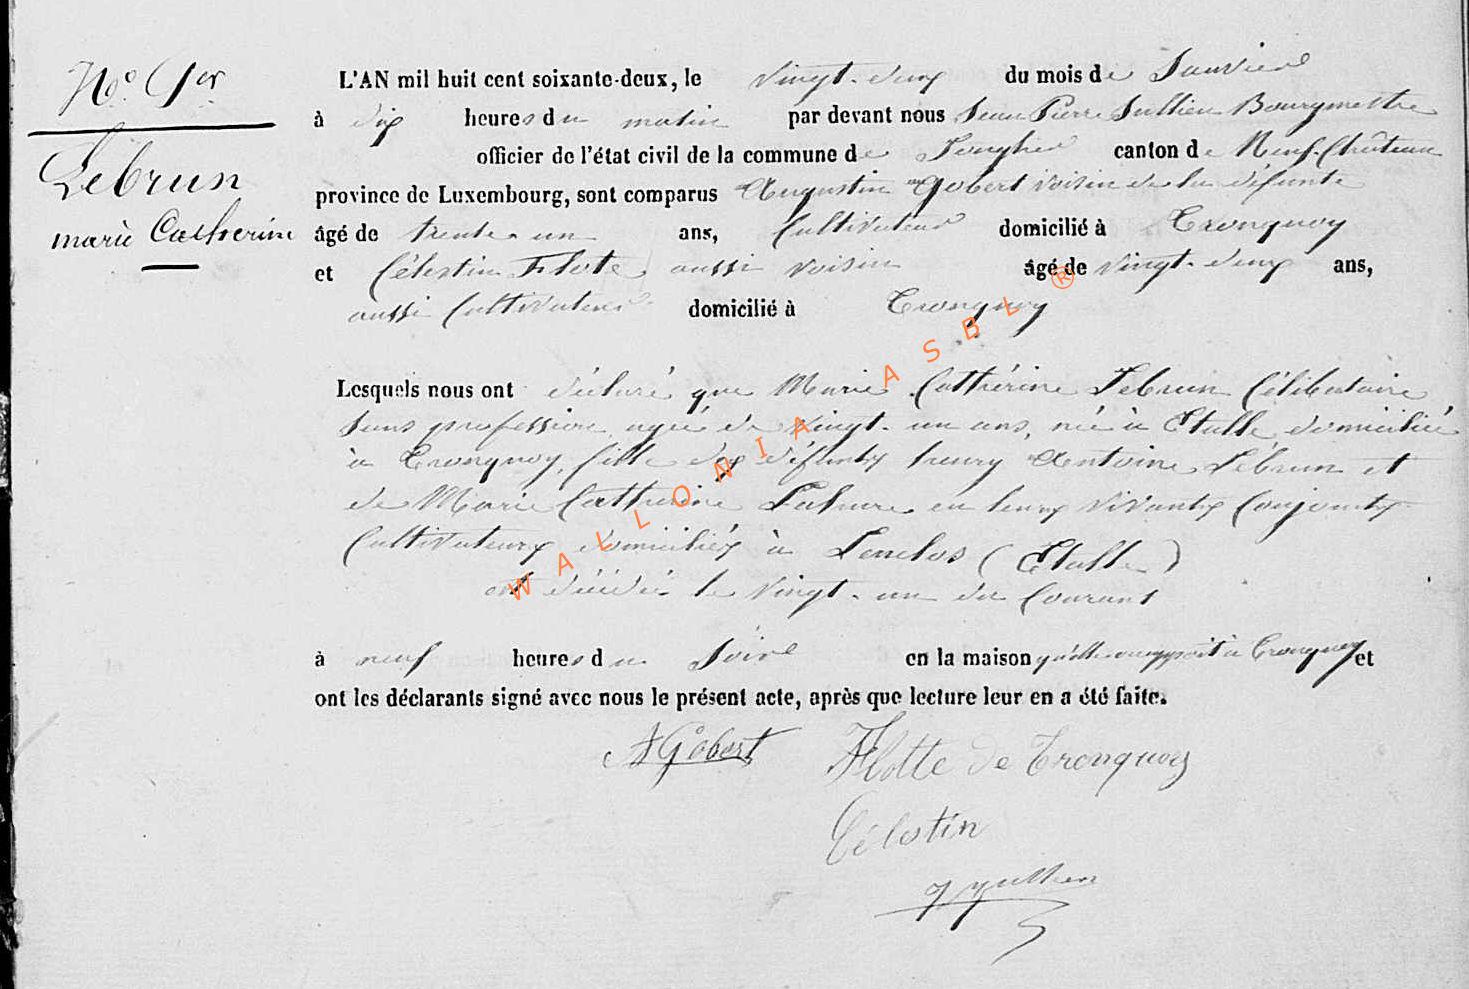 N° 1er
Lebrun
marie Catherine
L'AN mil huit cent soixante-deux, le vingt-deux du mois de Janvier
à dix heures du matin par devant nous Jean Pierre Bourgmestre
officier de l'état civil de la commune de canton de Neufchâteau
province de Luxembourg, sont comparus Augustin Gobert voisin de la défunte
âgé de trente-un ans, Cultivateur domicilié à Tronquoy
et Célestin Flote, aussi voisin âgé de vingt-deux ans,
aussi Cultivateur domicilié à Tronquoy
Lesquels nous ont déclaré que Marie Cathérine Lebrun Célibataire
sans profession, agée de vingt-un ans, née à Etalle, domiciliée
à Tronquoy, fille des défunts henry Antoine Lebrun et
de Marie Catherine en leurs vivants Conjoints
Cultivateurs domiciliés à Lenclos (Etalle)
est décédée le vingt-un du Courant
à neuf heures du Soire en la maison qu'elle occuppoit à Tronquoy et
ont les déclarants signé avec nous le présent acte, après que lecture leur en a été faite.
A Gobert
Flotte de Tronquoy
Célestin
WALLONIA ASBL ®